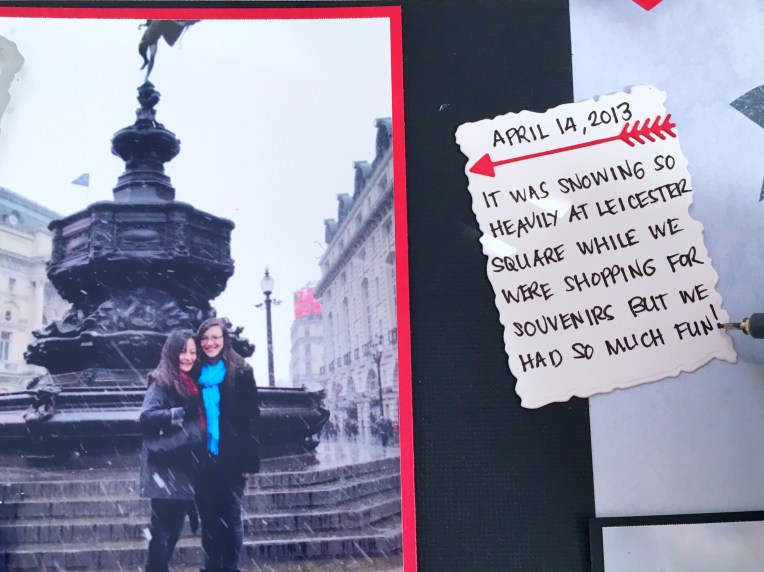 APRIL 14, 2013
IT WAS SNOWING SO
HEAVILY AT LEICESTER
SQUARE WHILE WE
WERE SHOPPING FOR
SOUVENIRS BUT WE
HAD SO MUCH FUN!